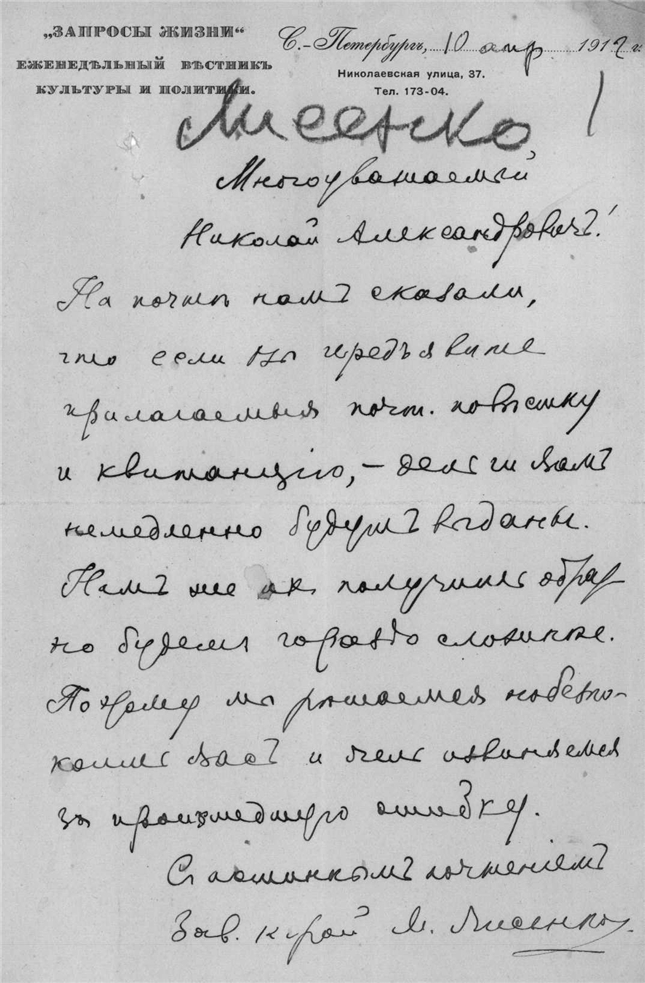 „ЗАПРОСЫ ЖИЗНИ“
ЕЖЕНЕДѢЛЬНЫЙ ВѢСТНИКЪ
КУЛЬТУРЫ И ПОЛИТИКИ.
С.-Петербургъ, 10 апр. 1912 г.
Николаевская улица, 37.
Тел. 173-04.
Лисенко!
Многоуважаемый
Николай Александровичъ!
На почтѣ намъ сказали,
что если вы предъявите
прилагаемыя почт. повѣстку
и квитанцію, – деньги вамъ
немедленно будутъ выданы.
Намъ же ихъ получить обрат
но будетъ гораздо сложнѣе.
Поэтому мы рѣшаемся побезпо-
коить васъ и очень извиняемся
за происшедшую ошибку.
Съ истиннымъ почтеніемъ
Зав. к-рой М. Лисенко.